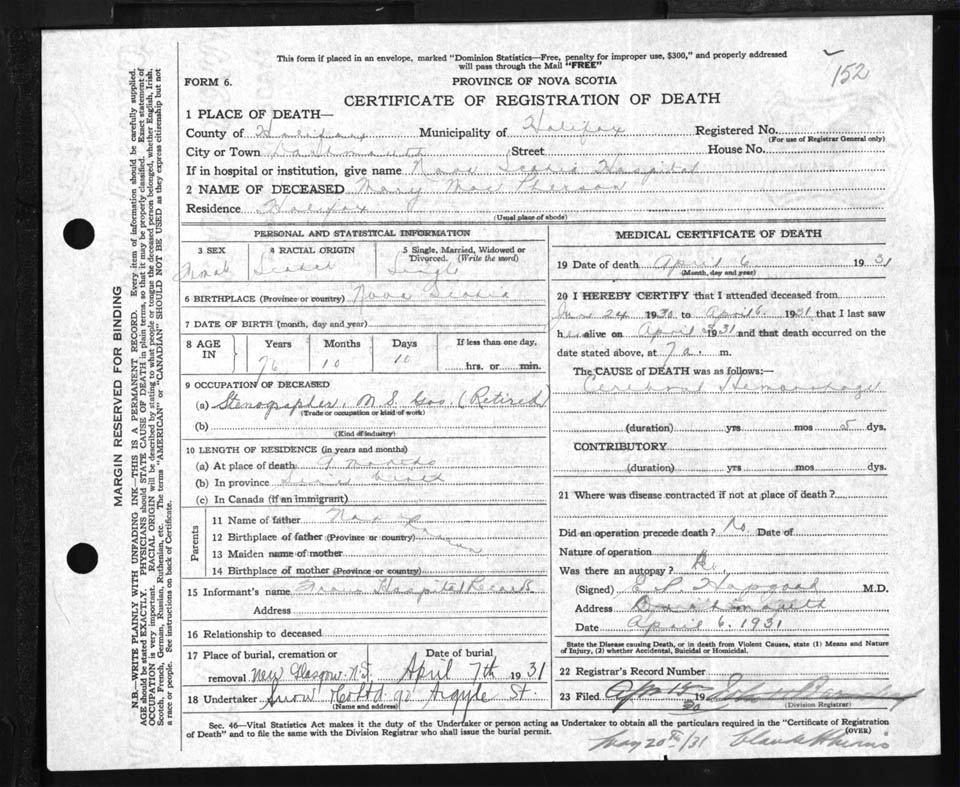 This form if placed in an envelope, marked "Dominion Statistics—Free, penalty for improper use, $300," and properly addressed
will pass through the Mail "FREE"
152
FORM 6.
PROVINCE OF NOVA SCOTIA
CERTIFICATE OF REGISTRATION OF DEATH
1 PLACE OF DEATH—
County of Halifax Municipality of Halifax Registered No.
(For use of Registrar General only)
City or Town Dartmouth Street House No.
If in hospital or institution, give name Nova Scotia Hospital
2 NAME OF DECEASED Mary MacPherson
Residence Halifax
(Usual place of abode)
PERSONAL AND STATISTICAL INFORMATION
3 SEX 4 RACIAL ORIGIN 5 Single, Married, Widowed or Divorced. (Write the word)
Female Scotch Single
6 BIRTHPLACE (Province or country) Nova Scotia
7 DATE OF BIRTH (month, day and year)
8 AGE IN Years Months Days If less than one day,
76 10 10 hrs. or min.
9 OCCUPATION OF DECEASED
(a) Stenographer, (Retired)
(Trade or occupation or kind of work)
(b)
(Kind of industry)
10 LENGTH OF RESIDENCE (in years and months)
(a) At place of death 9 months
(b) In province
(c) In Canada (if an immigrant)
Parents
11 Name of father
12 Birthplace of father (Province or country)
13 Maiden name of mother
14 Birthplace of mother (Province or country)
15 Informant's name From Hospital Records
Address
16 Relationship to deceased
17 Place of burial, cremation or removal New Glasgow N.S. Date of burial April 7th 1931
18 Undertaker Snow Co Ltd 90 Argyle St.
(Name and address)
MEDICAL CERTIFICATE OF DEATH
19 Date of death April 6 1931
(Month, day and year)
20 I HEREBY CERTIFY that I attended deceased from
24 1930 to April 6 1931 that I last saw
her alive on April 1931 and that death occurred on
date stated above, at 7 a. m.
The CAUSE of DEATH was as follows:—
Cerebral Hemorrhage
(duration) yrs mos 5 dys.
CONTRIBUTORY
(duration) yrs mos dys.
21 Where was disease contracted if not at place of death?
Did an operation precede death? No Date of
Nature of operation
Was there an autopsy?
(Signed) M.D.
Address Dartmouth
Date April 6, 1931
State the Disease causing Death, or in death from Violent Causes, state (1) Means and Nature
of Injury, (2) whether Accidental, Suicidal or Homicidal.
22 Registrar's Record Number
23 Filed Apr 15 19
(Division Registrar)
Sec. 46—Vital Statistics Act makes it the duty of the Undertaker or person acting as Undertaker to obtain all the particulars required in the "Certificate of Registration
of Death" and to file the same with the Division Registrar who shall issue the burial permit.
(OVER)
May 20th/31
MARGIN RESERVED FOR BINDING
N.B.—WRITE PLAINLY WITH UNFADING INK—THIS IS A PERMANENT RECORD. Every item of information should be carefully supplied.
AGE should be stated EXACTLY. PHYSICIANS should STATE CAUSE OF DEATH in plain terms, so that it may be properly classified. Exact statement of
OCCUPATION is very important. RACIAL ORIGIN will be described by stating to what people or tongue the deceased person belonged, whether English, Irish,
Scotch, French, German, Russian, Ruthenian, etc. The terms "AMERICAN" or "CANADIAN" SHOULD NOT BE USED as they express citizenship but not
a race or people. See instructions on back of Certificate.